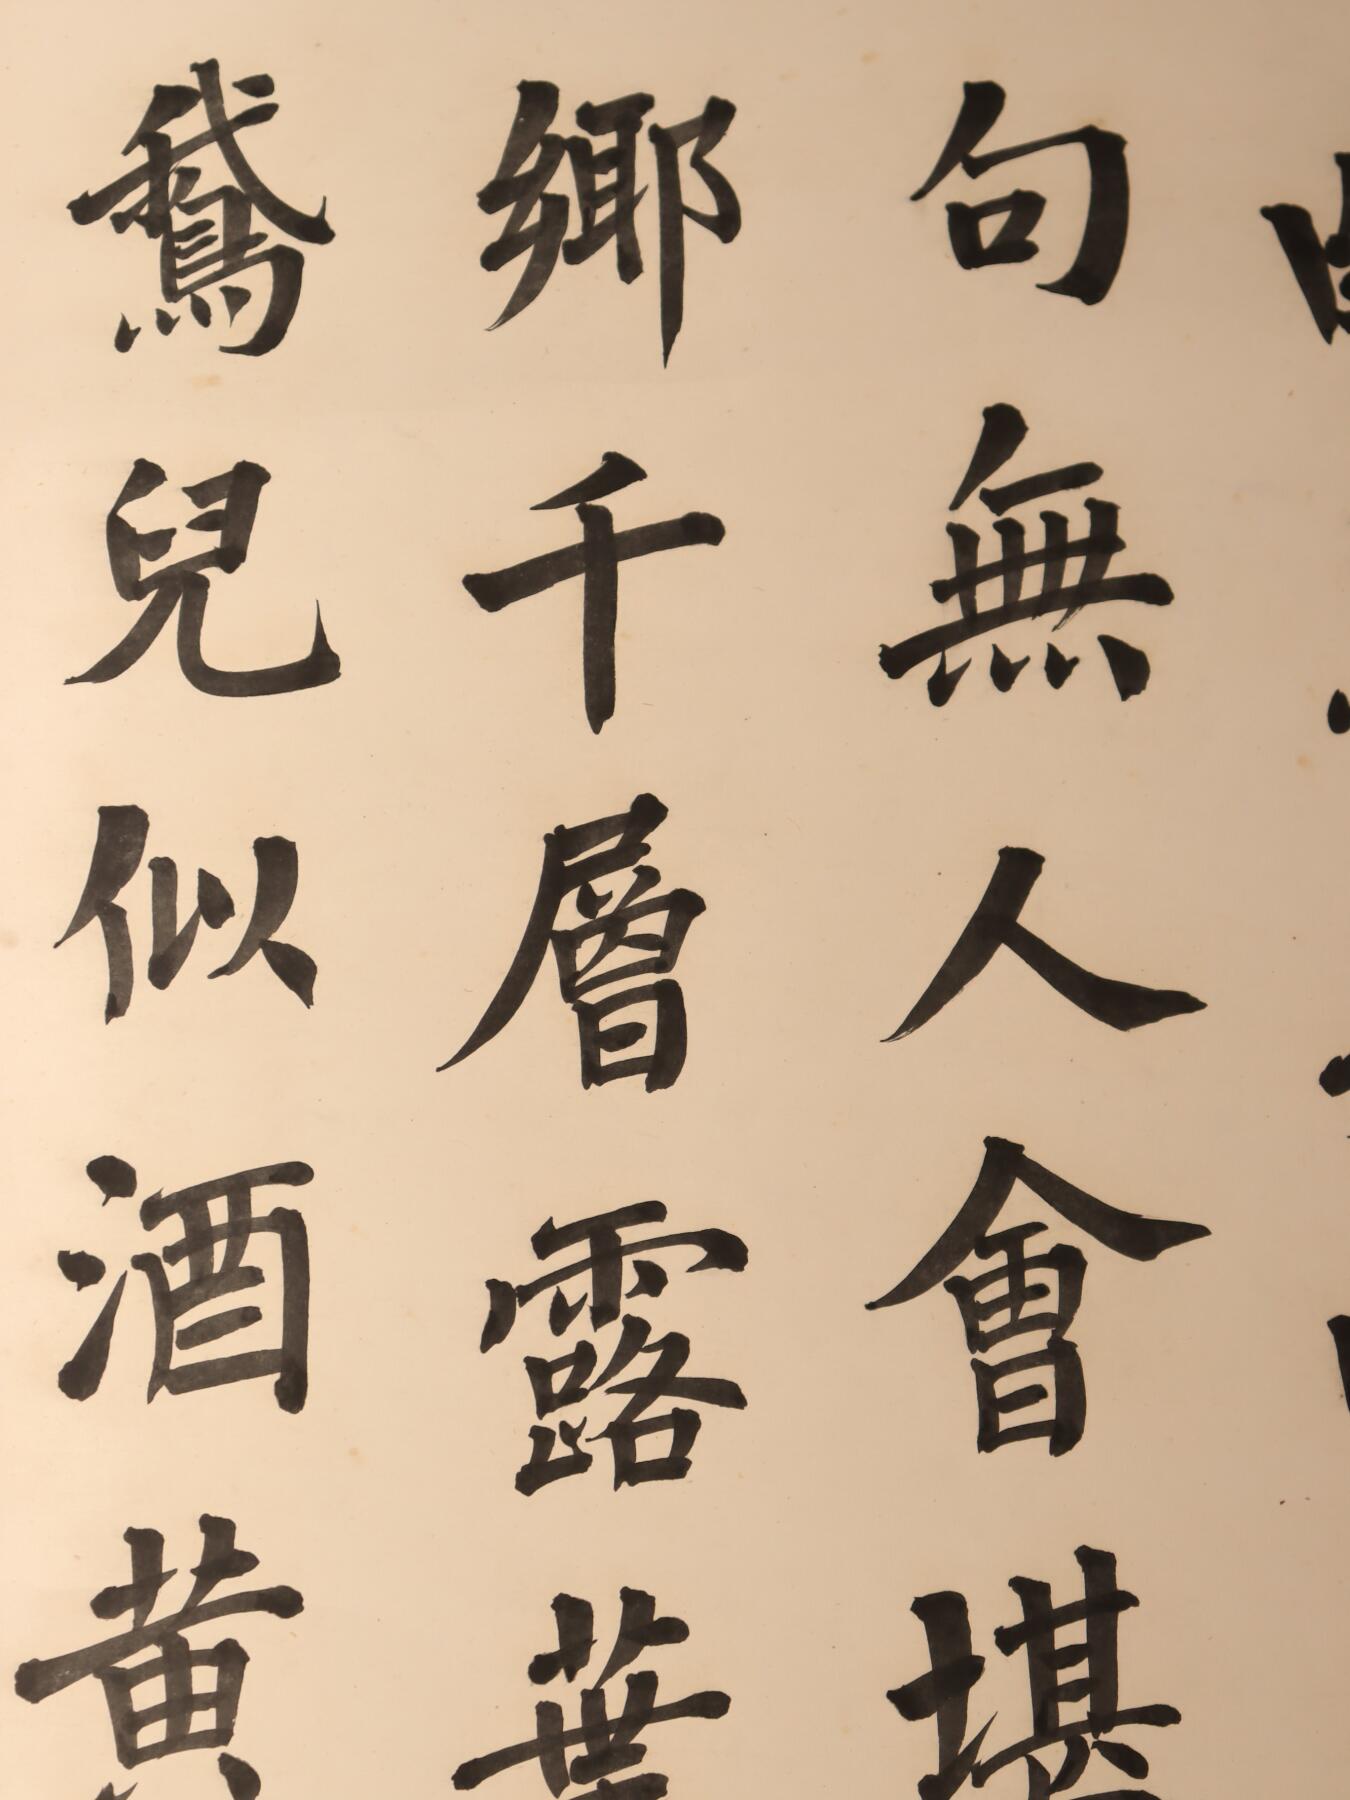 句無人會堪
鄉千層露葉
鵝兒似酒黃